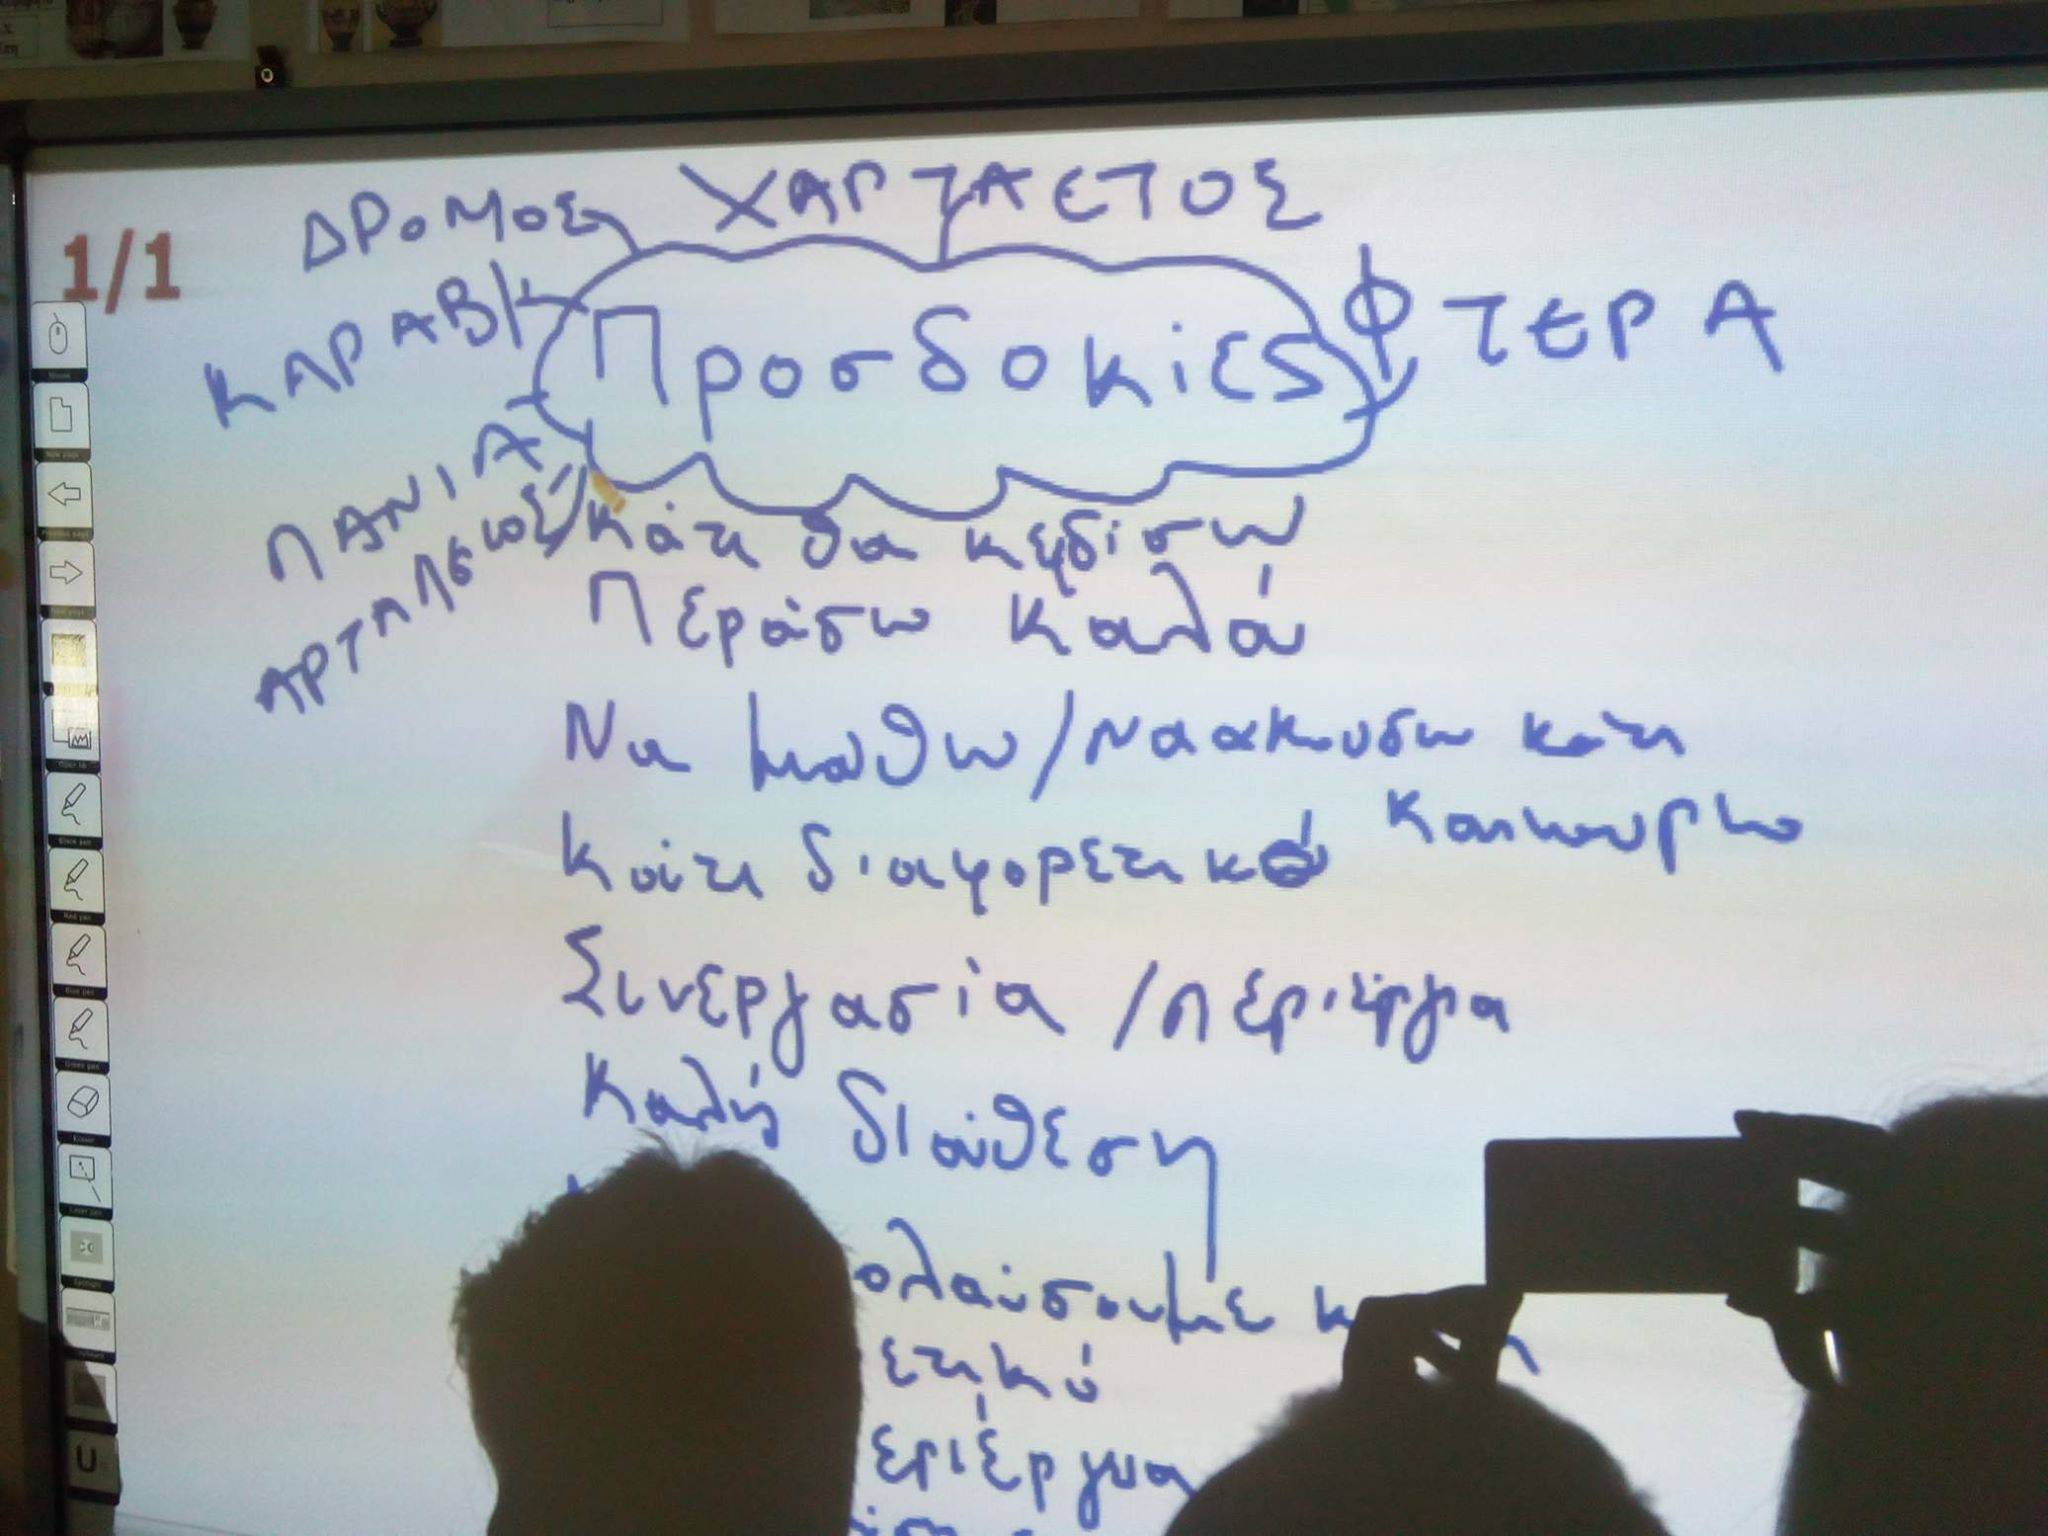 1/1
ΔΡΟΜΟΣ
ΧΑΡΤΑΕΤΟΣ
ΚΑΡΑΒΙ
Προσδοκίες
ΦΤΕΡΑ
ΠΑΝΙΑ
Κάτι θα κερδίσω
Περάσω καλά
Να μάθω/να ακούσω κάτι
καινούριο
Κάτι διαφορετικό
Συνεργασία /περιέργα
Καλή διάθεση
ολαύσουμε
ετικό
εριέργια